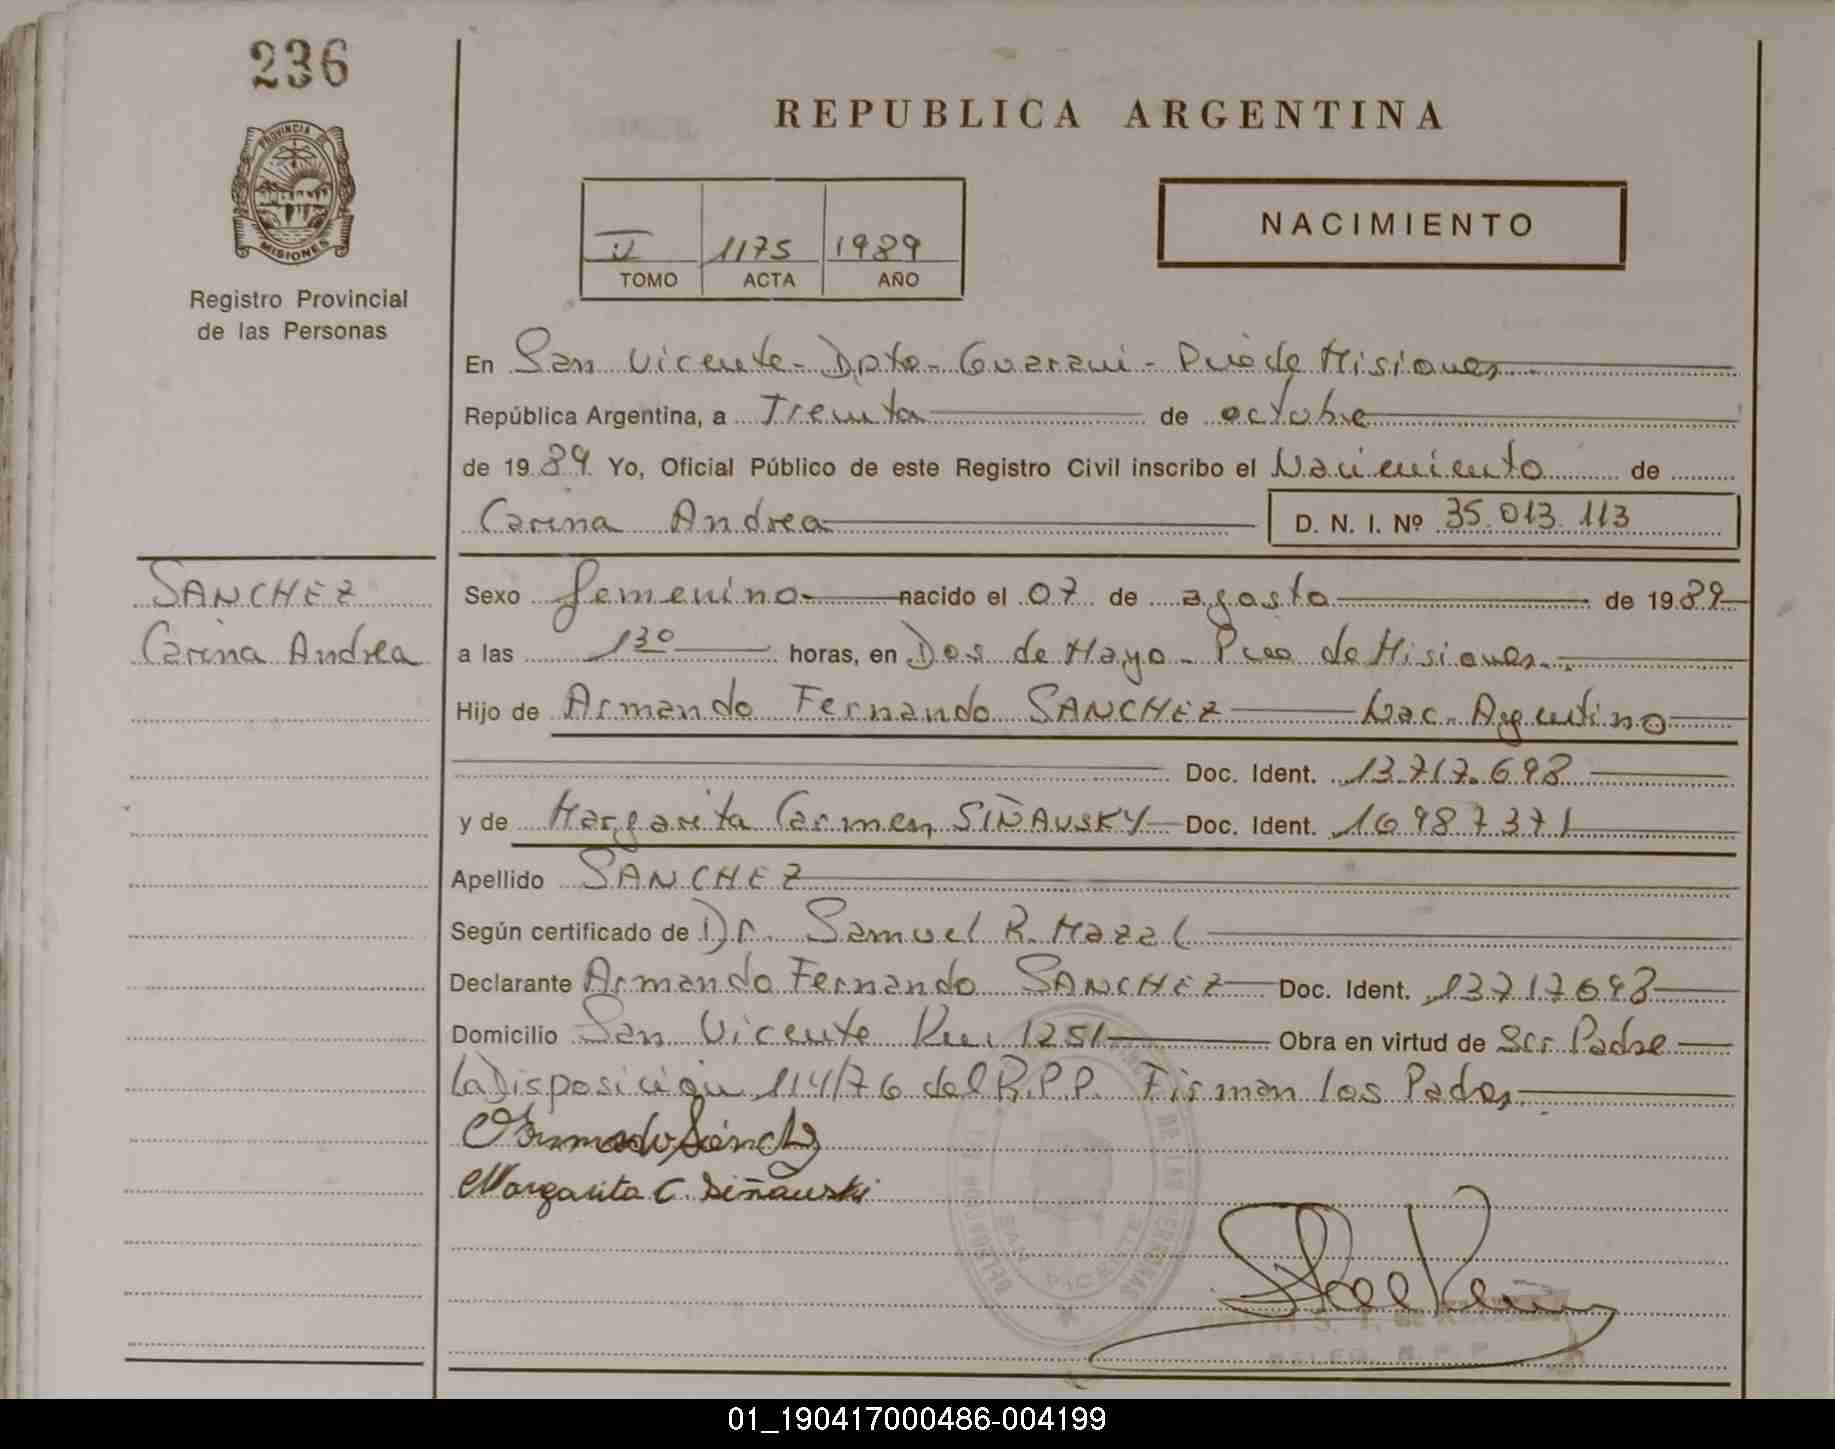 236
REPUBLICA ARGENTINA
PROVINCIA DE
MISIONES
Registro Provincial
de las Personas
II 1175 1989
TOMO ACTA AÑO
NACIMIENTO
En San Vicente - Dpto - Guarani - Pcia de Misiones
República Argentina, a Treinta de octubre
de 1989 Yo, Oficial Público de este Registro Civil inscribo el Nacimiento de
Carina Andrea D. N. I. Nº 35.013.113
SANCHEZ
Carina Andrea
Sexo femenino nacido el 07 de agosto de 1989
a las 13º horas, en Dos de Mayo - Pcia de Misiones
Hijo de Armando Fernando SANCHEZ Nac. Argentino
Doc. Ident. 13.717.698
y de Margarita Carmen SIÑAUSKY Doc. Ident. 16987371
Apellido SANCHEZ
Según certificado de Dr. Samuel R. Mazal
Declarante Armando Fernando SANCHEZ Doc. Ident. 13717698
Domicilio San Vicente Km. 1251 Obra en virtud de Ser Padre
La Disposición 114/76 del R.P.P. Firman los Padres
Armando Sánchez
Margarita C. Siñauski
SAN VICENTE
DELEG. R. P. P.
01_190417000486-004199